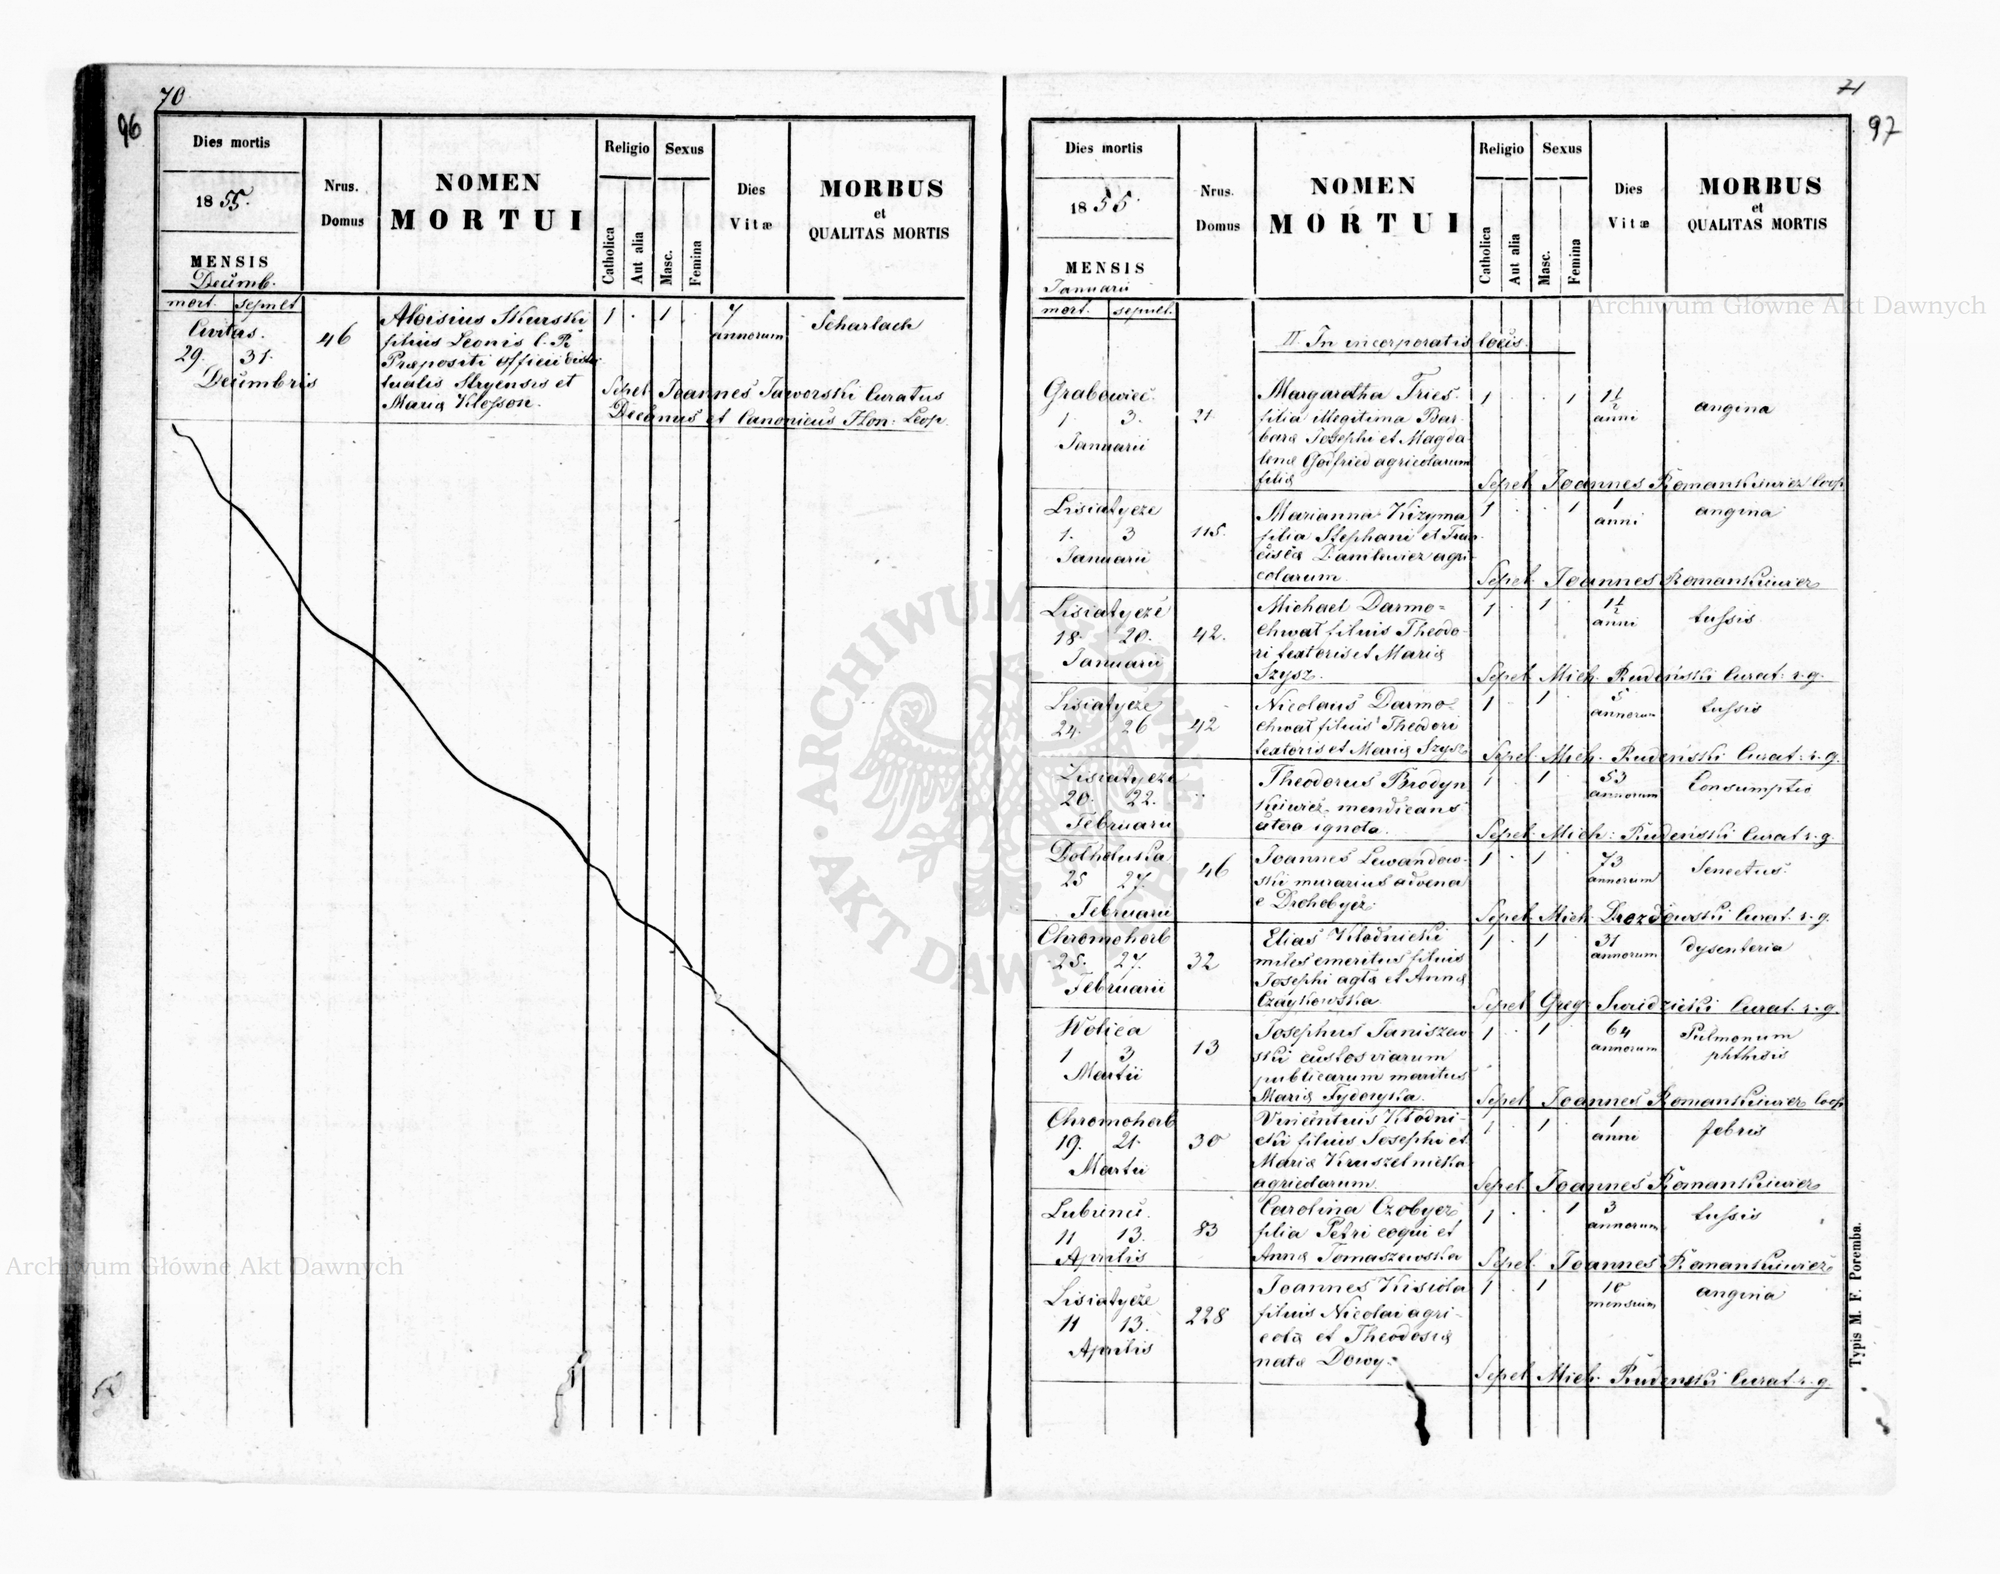 70
96
Dies mortis
1855.
MENSIS
Decemb.
mort. sepult
Nrus.
Domus
NOMEN
MORTUI
Religio
Catholica
Aut alia
Sexus
Masc.
Femina
Dies
Vitæ
MORBUS
et
QUALITAS MORTIS
Civitas.
29. 31.
Decembris
46
Aloisius Skurski
filius Leonis C. R.
Præpositi officii
tualis Stryensis et
Maria Klosson.
1 . 1 .
7
annorum
Scharlach
Sepel. Joannes Jaworski Curatus
Decanus et Canonicus Hon: Leop.
71
97
Dies mortis
1855.
MENSIS
Januarii
mort. sepult.
Nrus.
Domus
NOMEN
MORTUI
Religio
Catholica
Aut alia
Sexus
Masc.
Femina
Dies
Vitæ
MORBUS
et
QUALITAS MORTIS
II. In incorporatis locis.
Grabowiec.
1. 3.
Januarii
21.
Margaretha Fries
filia illegitima Bar-
baræ Josephi et Magda-
lenæ Gotfried agricolarum
filiæ
1 . . 1
1 1/2
anni
angina
Sepel. Joannes Romankiewicz Coop
Lisiatycze
1. 3
Januarii
115.
Marianna Kizyma
filia Stephani et Fran-
ciscæ Danilewicz agri
colarum.
1 . . 1
1
anni
angina
Sepel. Joannes Romankiewicz
Lisiatycze
18. 20.
Januarii
42.
Michael Darmo=
chwał filius Theodo-
ri textoris et Mariæ
Szysz.
1 . 1 .
1 1/2
anni
tussis
Sepel. Mich. Rudeński Curat. r. g.
Lisiatycze
24. 26
42
Nicolaus Darmo-
chwał filius Theodori
textoris et Mariæ Szysz
1 . 1
5
annorum
tussis
Sepel. Mich. Rudeński Curat. r. g.
Lisiatycze
20. 22.
Februarii
Theodorus Brodyn
kiewicz mendicans
cætera ignota.
1 . 1
53
annorum
Consumptio
Sepel. Mich: Rudeński Curat r. g.
Dołhołuka
25 27.
Februarii
46
Joannes Lewandow-
ski murarius advena
e Drohobycz.
1 . 1
73
annorum
Senectus.
Sepel. Mich. Drozdowski Curat. r. g.
Chromohorb
25. 27.
Februarii
32
Elias Kłodnicki
miles emeritus filius
Josephi agtæ et Annæ
Czaykowska.
1 . 1
31
annorum
dysenteria
Sepel. Greg. Curat. r. g.
Wolica
1 3
Martii
13
Josephus Janiszew
ski custos viarum
publicarum maritus
Mariæ
1 . 1
64
annorum
Pulmonum
phthisis
Sepel. Joannes Romankiewicz Coop
Chromohorb
19. 21.
Martii
30
Vincentius Kłodni-
cki filius Josephi et
Mariæ Kruszelnicka
agricolarum.
1 . 1
1
anni
febris
Sepel. Joannes Romankiewicz
Lubience.
11 13.
Aprilis
83
Carolina Czobycz
filia Petri coqui et
Annæ Tomaszewska
1 . . 1
3
annorum
tussis
Sepel. Joannes Romankiewicz
Lisiatycze
11 13.
Aprilis
228
Joannes Kisioła
filius Nicolai agri-
colæ et Theodosiæ
natæ Dowy.
1 . 1
10
mensium
angina
Sepel. Mich. Rudeński Curat. r. g
Typis M. F. Poremba.
Archiwum Główne Akt Dawnych
Archiwum Główne Akt Dawnych
ARCHIWUM GŁÓWNE
AKT DAWNYCH